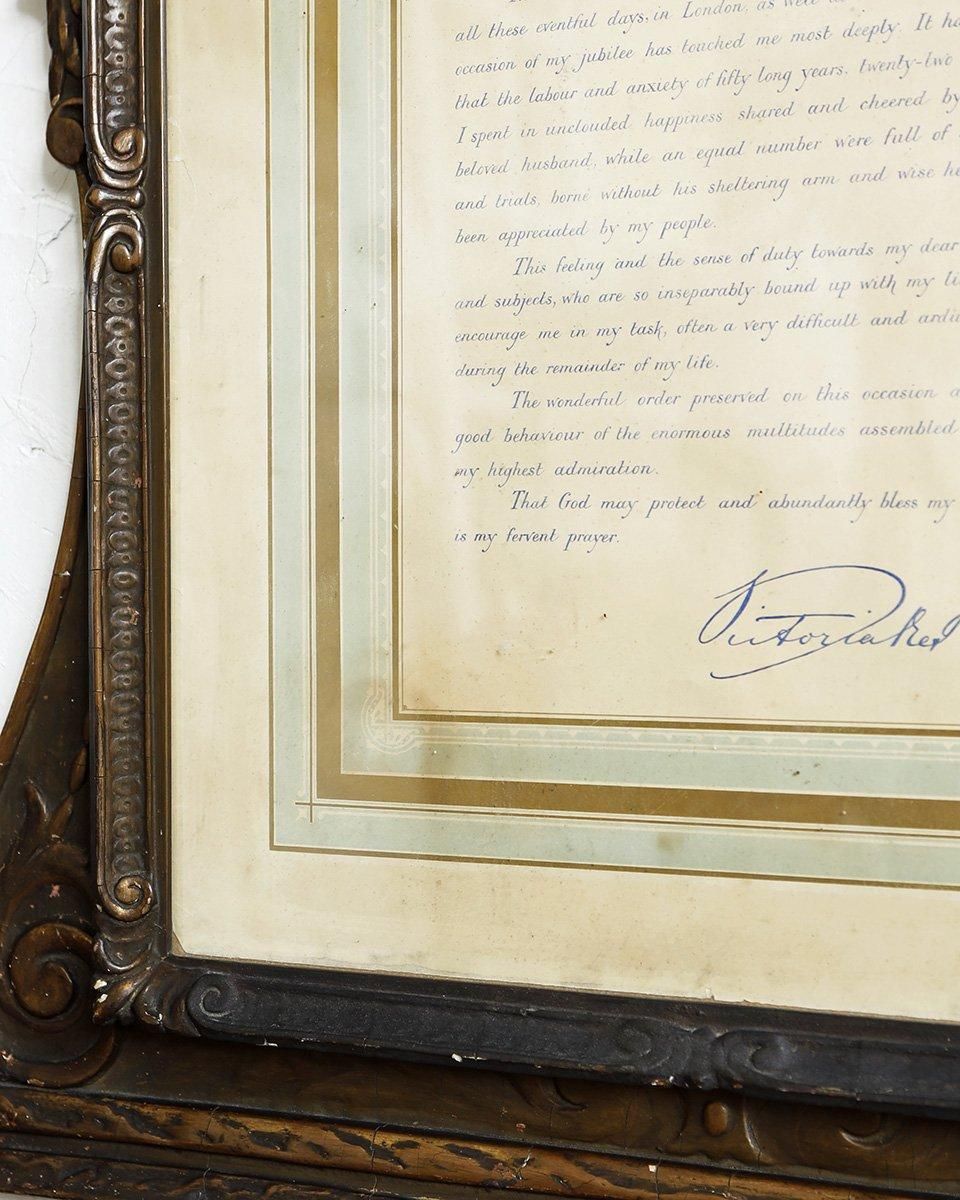 all these eventful days, in London, as well
occasion of my jubilee has touched me most deeply. It
that the labour and anxiety of fifty long years. twenty-two
I spent in unclouded happiness shared and cheered by
beloved husband, while an equal number were full of
and trials, borne without his sheltering arm and wise
been appreciated by my people.
This feeling and the sense of duty towards my dear
and subjects, who are so inseparably bound up with my
encourage me in my task, often a very difficult and
during the remainder of my life.
The wonderful order preserved on this occasion
good behaviour of the enormous multitudes assembled
my highest admiration.
That God may protect and abundantly bless my
is my fervent prayer.
Victoria